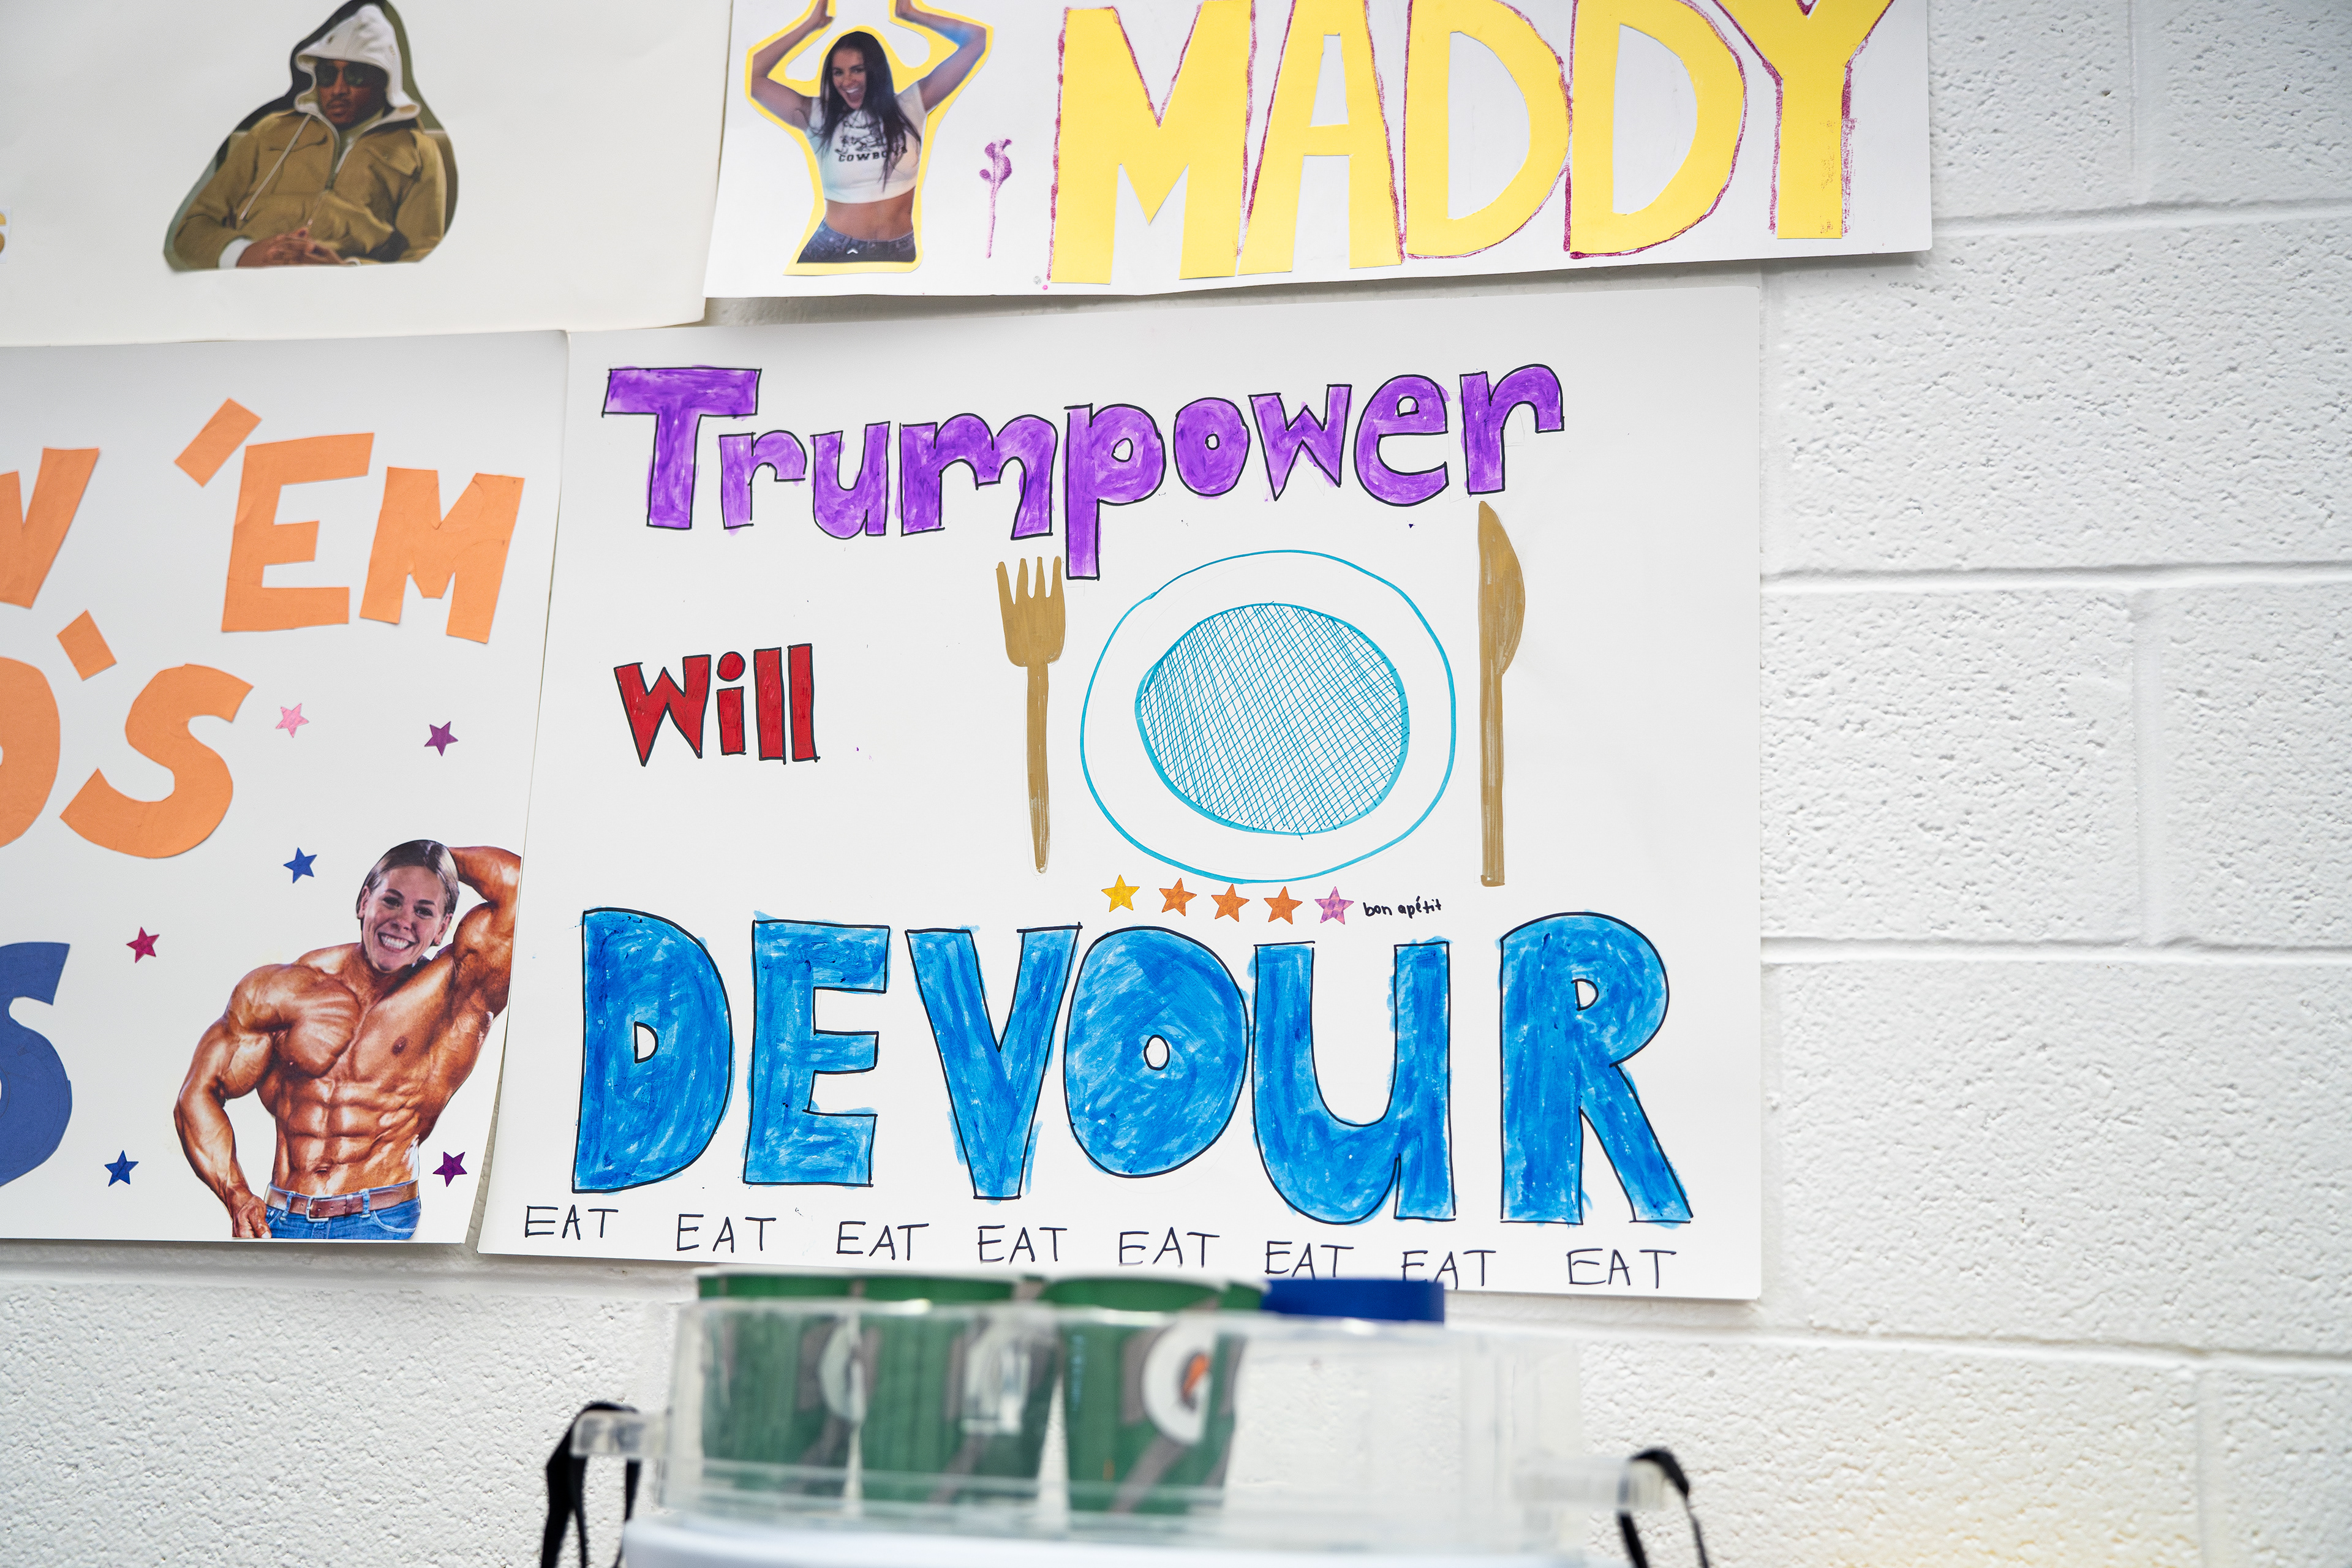 $ MADDY
COWBOYS
W 'EM
O'S
S
Trumpower
Will
bon apétit
DEVOUR
EAT EAT EAT EAT EAT EAT EAT EAT
G